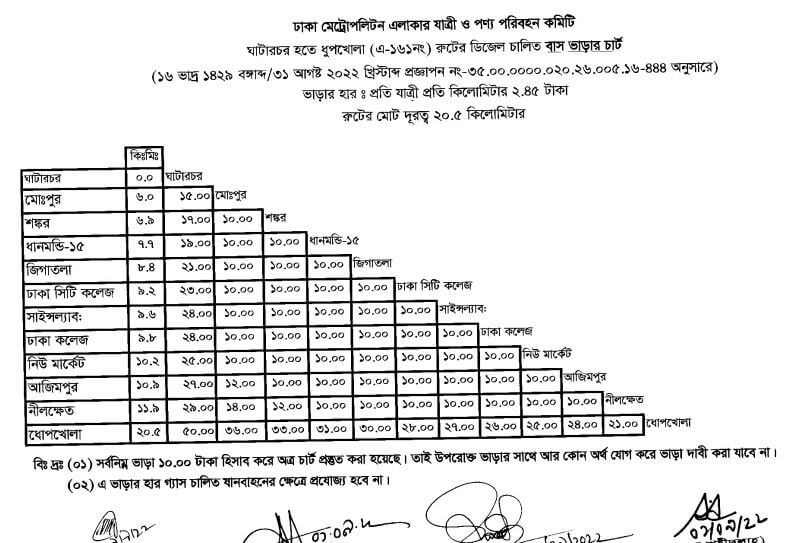 ঢাকা মেট্রোপলিটন এলাকার যাত্রী ও পণ্য পরিবহন কমিটি
ঘাটারচর হতে ধুপখোলা (এ-১৬১নং) রুটের ডিজেল চালিত বাস ভাড়ার চার্ট
(১৬ ভাদ্র ১৪২৯ বঙ্গাব্দ/৩১ আগষ্ট ২০২২ খ্রিস্টাব্দ প্রজ্ঞাপন নং-৩৫.০০.০০০০.০২০.২৬.০০৫.১৬-৪৪৪ অনুসারে)
ভাড়ার হার ঃ প্রতি যাত্রী প্রতি কিলোমিটার ২.৪৫ টাকা
রুটের মোট দূরত্ব ২০.৫ কিলোমিটার
কিঃমিঃ
ঘাটারচর ০.০ ঘাটারচর
মোঃপুর ৬.০ ১৫.০০ মোঃপুর
শঙ্কর ৬.৯ ১৭.০০ ১০.০০ শঙ্কর
ধানমন্ডি-১৫ ৭.৭ ১৯.০০ ১০.০০ ১০.০০ ধানমন্ডি-১৫
জিগাতলা ৮.৪ ২১.০০ ১০.০০ ১০.০০ ১০.০০ জিগাতলা
ঢাকা সিটি কলেজ ৯.২ ২৩.০০ ১০.০০ ১০.০০ ১০.০০ ১০.০০ ঢাকা সিটি কলেজ
সাইন্সল্যাব: ৯.৬ ২৪.০০ ১০.০০ ১০.০০ ১০.০০ ১০.০০ ১০.০০ সাইন্সল্যাব:
ঢাকা কলেজ ৯.৮ ২৪.০০ ১০.০০ ১০.০০ ১০.০০ ১০.০০ ১০.০০ ১০.০০ ঢাকা কলেজ
নিউ মার্কেট ১০.২ ২৫.০০ ১০.০০ ১০.০০ ১০.০০ ১০.০০ ১০.০০ ১০.০০ ১০.০০ নিউ মার্কেট
আজিমপুর ১০.৯ ২৭.০০ ১২.০০ ১০.০০ ১০.০০ ১০.০০ ১০.০০ ১০.০০ ১০.০০ ১০.০০ আজিমপুর
নীলক্ষেত ১১.৯ ২৯.০০ ১৪.০০ ১২.০০ ১০.০০ ১০.০০ ১০.০০ ১০.০০ ১০.০০ ১০.০০ ১০.০০ নীলক্ষেত
ধোপখোলা ২০.৫ ৫০.০০ ৩৬.০০ ৩৩.০০ ৩১.০০ ৩০.০০ ২৮.০০ ২৭.০০ ২৬.০০ ২৫.০০ ২৪.০০ ২১.০০ ধোপখোলা
বিঃ দ্রঃ (০১) সর্বনিম্ন ভাড়া ১০.০০ টাকা হিসাব করে অত্র চার্ট প্রস্তুত করা হয়েছে। তাই উপরোক্ত ভাড়ার সাথে আর কোন অর্থ যোগ করে ভাড়া দাবী করা যাবে না।
(০২) এ ভাড়ার হার গ্যাস চালিত যানবাহনের ক্ষেত্রে প্রযোজ্য হবে না।